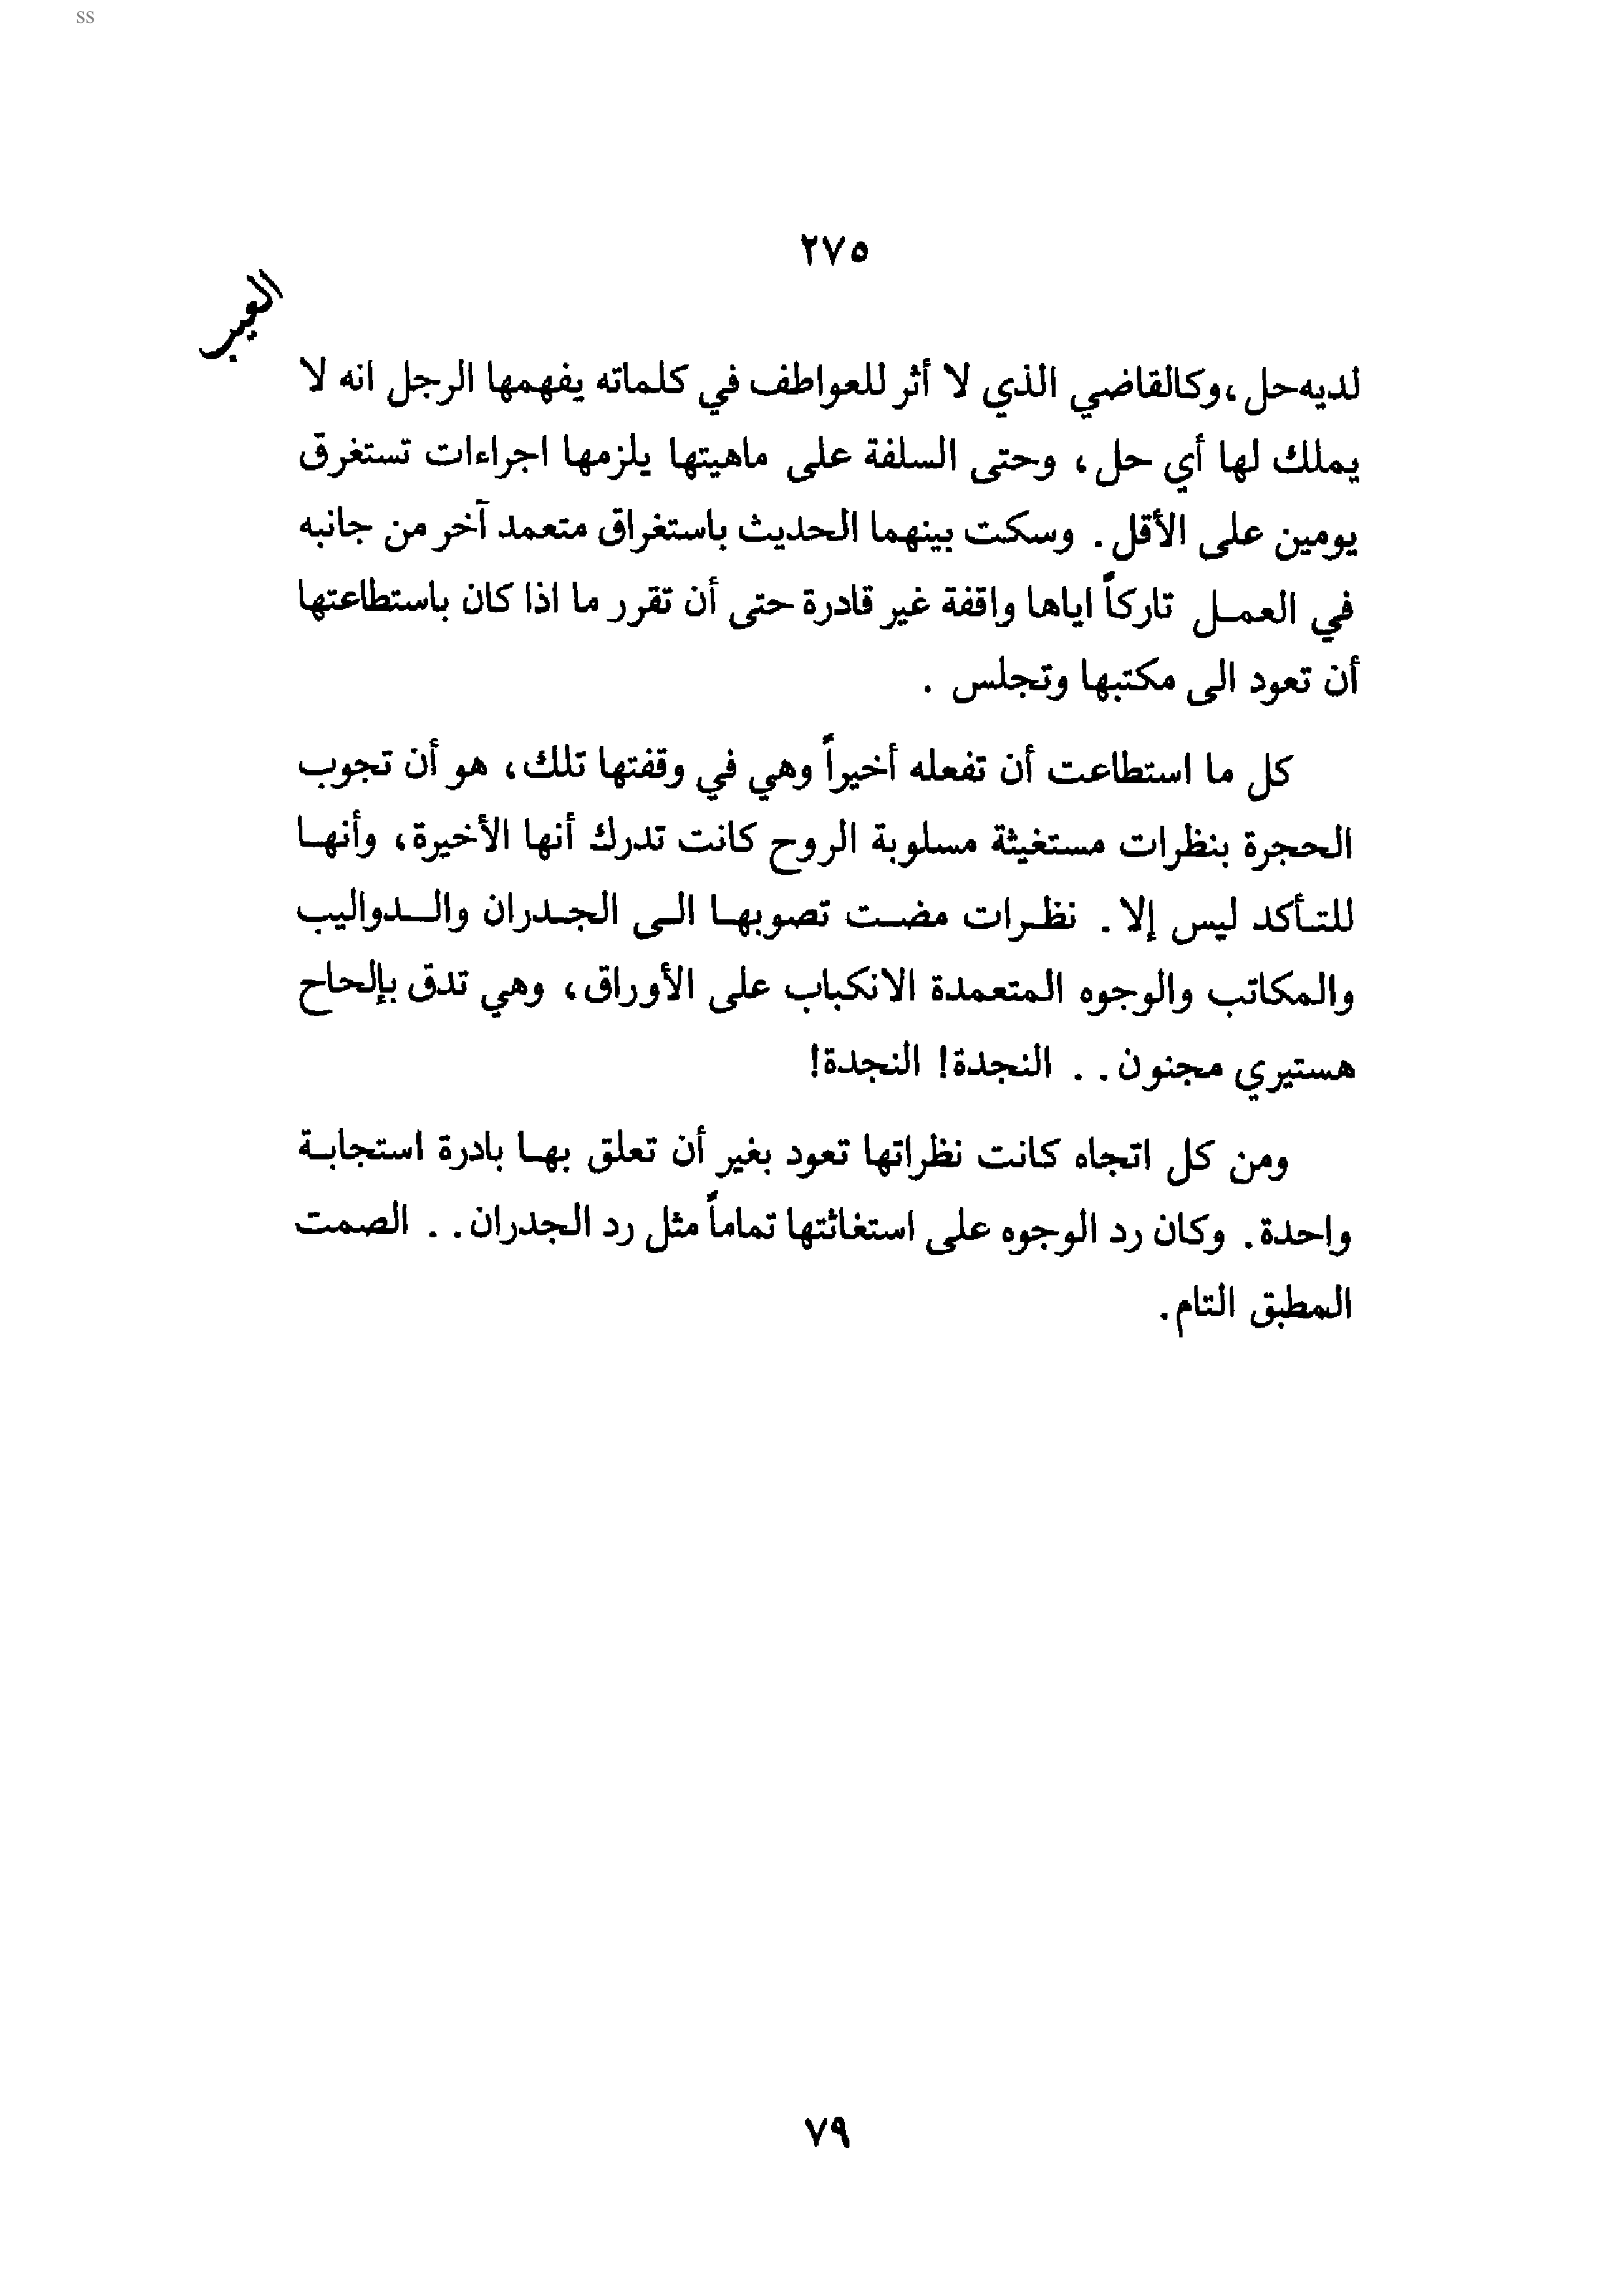 ss
٢٧٥
العيب
لديه حل ، وكالقاضي الذي لا أثر للعواطف في كلماته يفهمها الرجل انه لا
يملك لها أي حل ، وحتى السلفة على ماهيتها يلزمها اجراءات تستغرق
يومين على الأقل . وسكت بينهما الحديث باستغراق متعمد آخر من جانبه
في العمل تاركاً اياها واقفة غير قادرة حتى أن تقرر ما اذا كان باستطاعتها
أن تعود الى مكتبها وتجلس .
كل ما استطاعت أن تفعله أخيراً وهي في وقفتها تلك ، هو أن تجوب
الحجرة بنظرات مستغيثة مسلوبة الروح كانت تدرك أنها الأخيرة ، وأنها
للتأكد ليس إلا . نظرات مضت تصوبها الى الجدران والدواليب
والمكاتب والوجوه المتعمدة الانكباب على الأوراق ، وهي تدق بإلحاح
هستيري مجنون . . النجدة! النجدة!
ومن كل اتجاه كانت نظراتها تعود بغير أن تعلق بها بادرة استجابة
واحدة . وكان رد الوجوه على استغاثتها تماماً مثل رد الجدران . . الصمت
المطبق التام .
٧٩